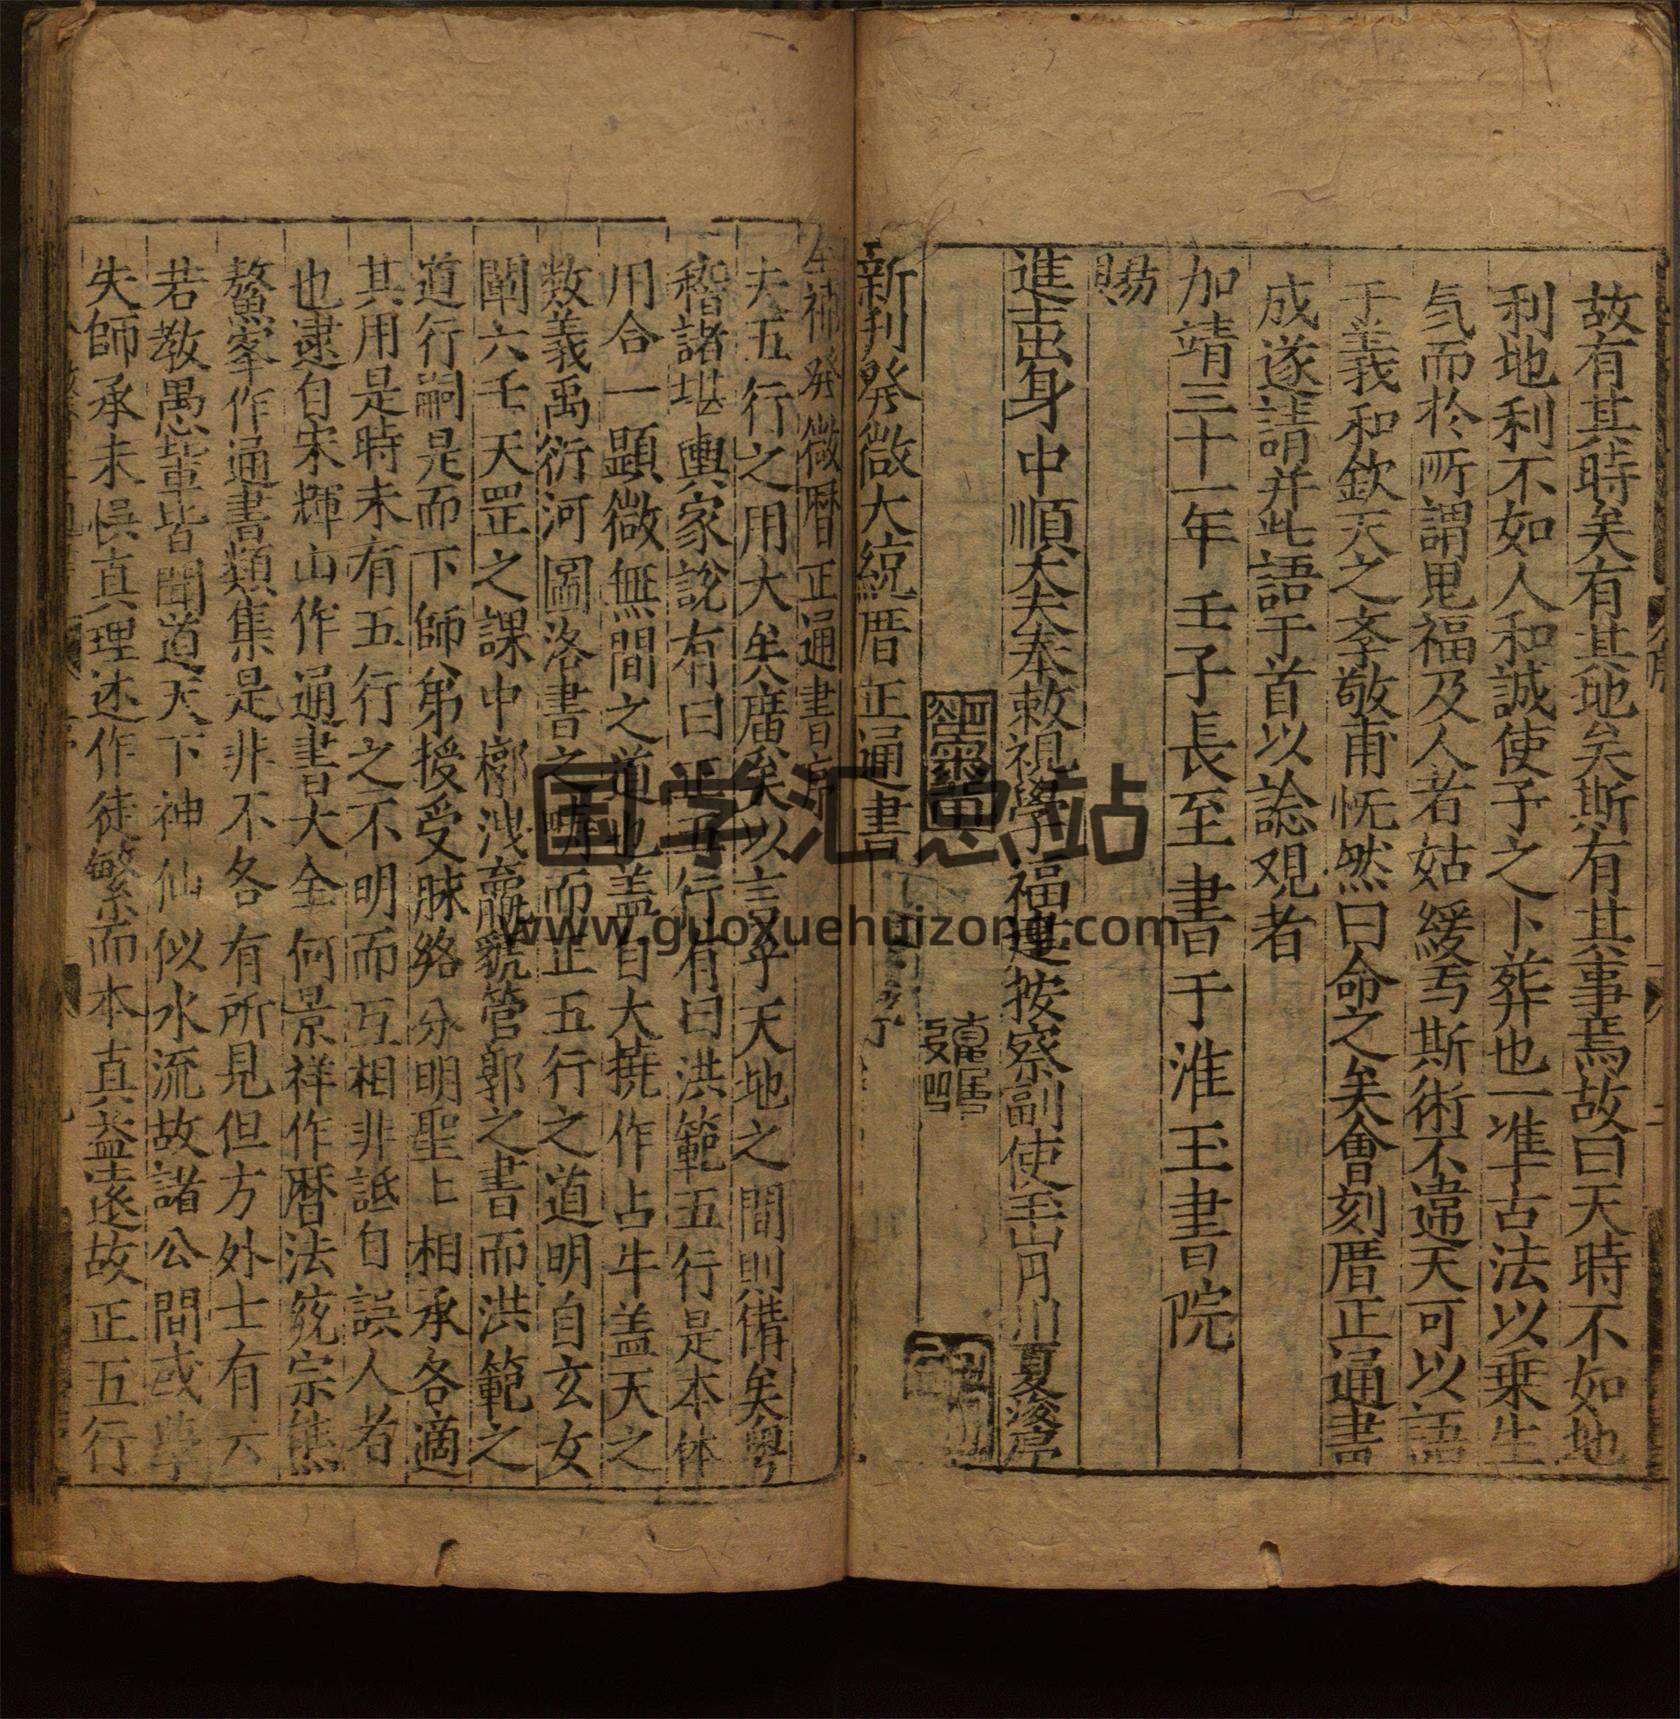 故有其時矣有其地矣斯有其事焉故曰天時不如地
利地利不如人和誠使予之卜葬也一準古法以乗生
氣而於所謂鬼福及人者姑緩焉斯術不違天可以語
于義和欽天之季敬甫怃然曰命之矣會刻厝正通書
成遂請并此語于首以諗观者
加靖三十一年壬子長至書于淮王書院
賜
進士出身中順大夫奉敕視學福建按察副使玉山月川夏浚序
新刋發微大統厝正通書
發微曆正通書序
夫五行之用大矣廣矣以言乎天地之間則備矣粤
稽諸堪輿家說有曰正五行有曰洪範五行是本体
用合一顕微無間之道也盖自大撓作占牛盖天之
数義禹衍河圖洛書之文而正五行之道明自玄女
闡六壬天罡之課中㨯洩竊貌管郭之書而洪範之
道行嗣是而下師弟授受脉絡分明聖上相承各適
其用是時未有五行之不明而互相非詆自誤人者
也逮自宋輝山作通書大全何景祥作曆法兗宗熊
鰲峯作通書類集是非不各有所見但方外士有云
若教愚輩皆聞道天下神仙似水流故諸公間或學
失師承未悞真理述作徒繁而本真益遠故正五行
国学汇总站
www.guoxuehuizong.com